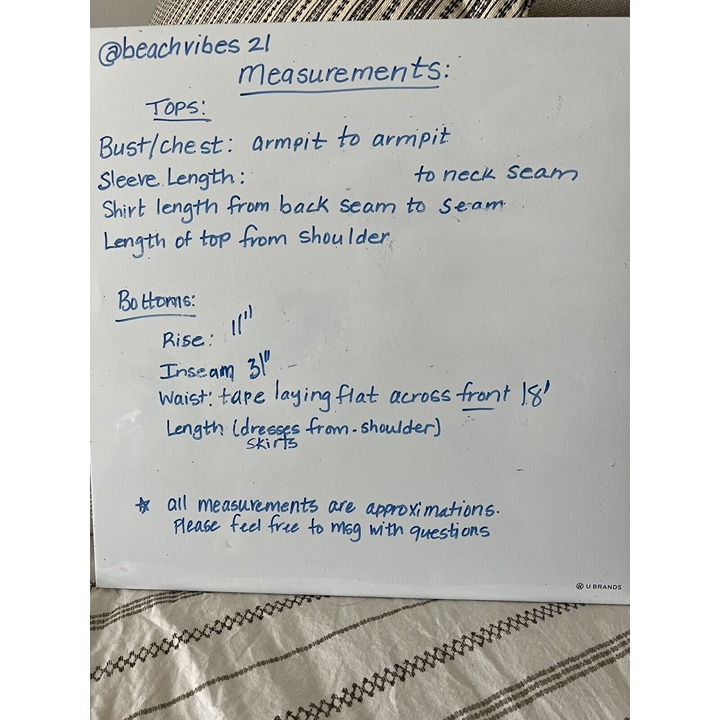 @beachvibes 21
Measurements:
Tops:
Bust/chest: armpit to armpit
Sleeve Length: to neck seam
Shirt length from back seam to seam
Length of top from shoulder
Bottoms:
Rise: 11"
Inseam 31"
Waist: tape laying flat across front 18'
Length (dresses from-shoulder)
skirts
☆ all measurements are approximations.
Please feel free to msg with questions
U BRANDS